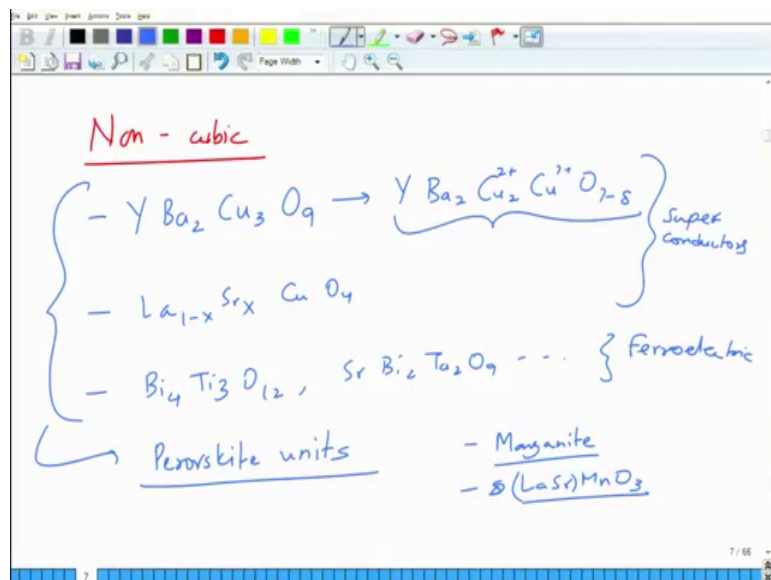 File Edit View Insert Actions Tools Help
B I
Page Width
Non - cubic
- Y Ba₂ Cu₃ O₉ → Y Ba₂ Cu₂²⁺ Cu³⁺ O₇₋δ
Super
conductors
- La₁₋ₓ Srₓ Cu O₄
- Bi₄ Ti₃ O₁₂, Sr Bi₂ Ta₂ O₉ - - - } Ferroelectric
Perovskite units
- Manganite
- (LaSr)MnO₃
7/66
7